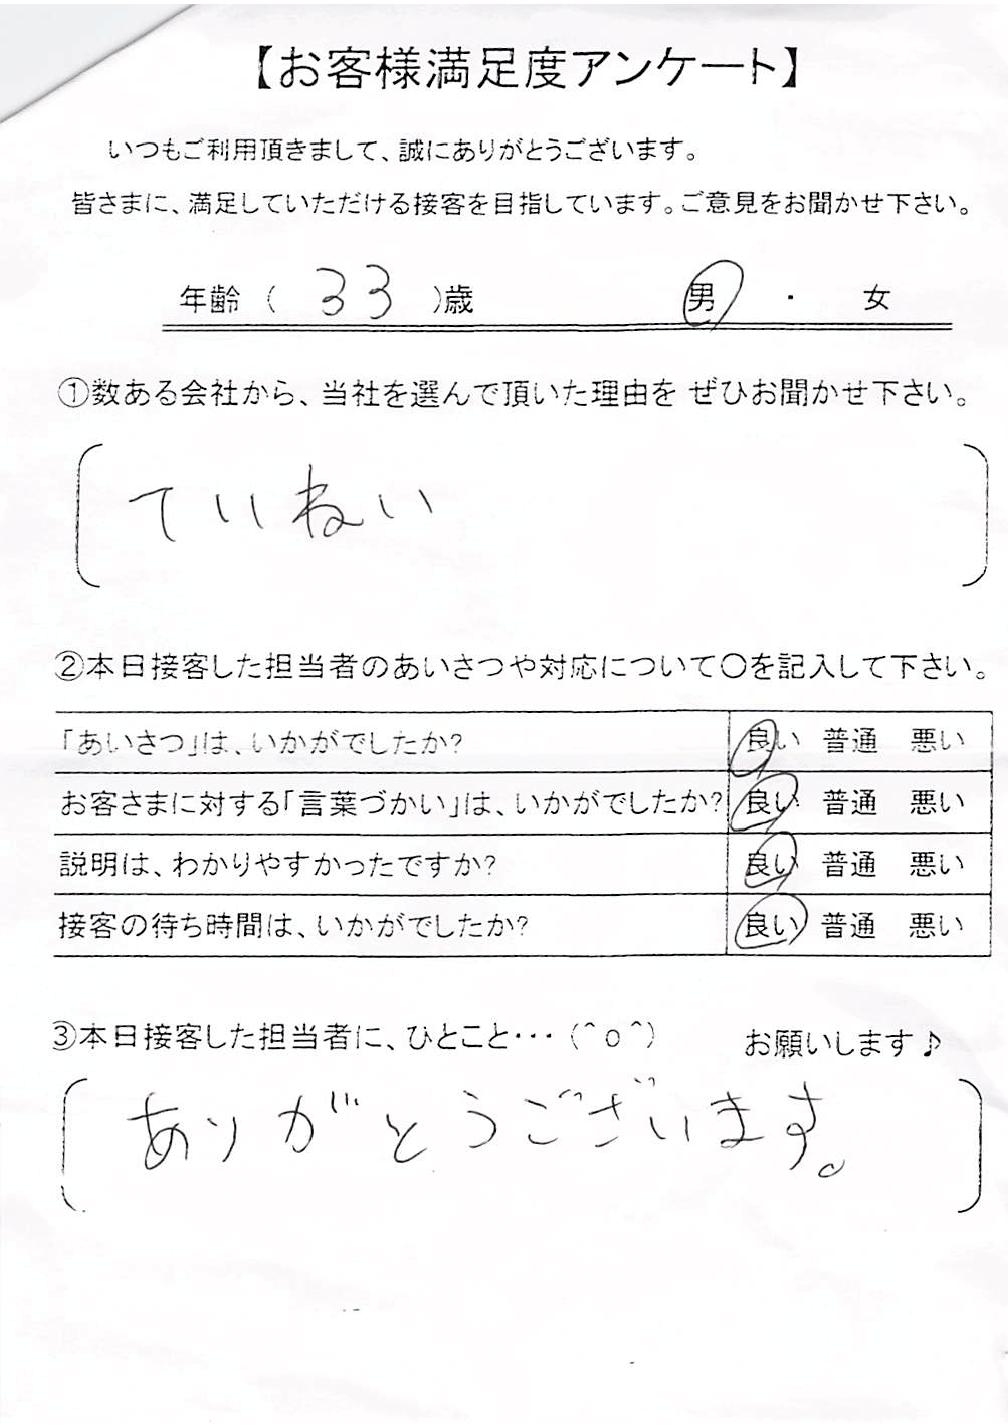 【お客様満足度アンケート】
いつもご利用頂きまして、誠にありがとうございます。
皆さまに、満足していただける接客を目指しています。ご意見をお聞かせ下さい。
年齢 ( 33 )歳 男 ・ 女
①数ある会社から、当社を選んで頂いた理由を ぜひお聞かせ下さい。
ていねい
②本日接客した担当者のあいさつや対応について〇を記入して下さい。
「あいさつ」は、いかがでしたか? 良い 普通 悪い
お客さまに対する「言葉づかい」は、いかがでしたか? 良い 普通 悪い
説明は、わかりやすかったですか? 良い 普通 悪い
接客の待ち時間は、いかがでしたか? 良い 普通 悪い
③本日接客した担当者に、ひとこと・・・ (^o^) お願いします♪
ありがとうございます。